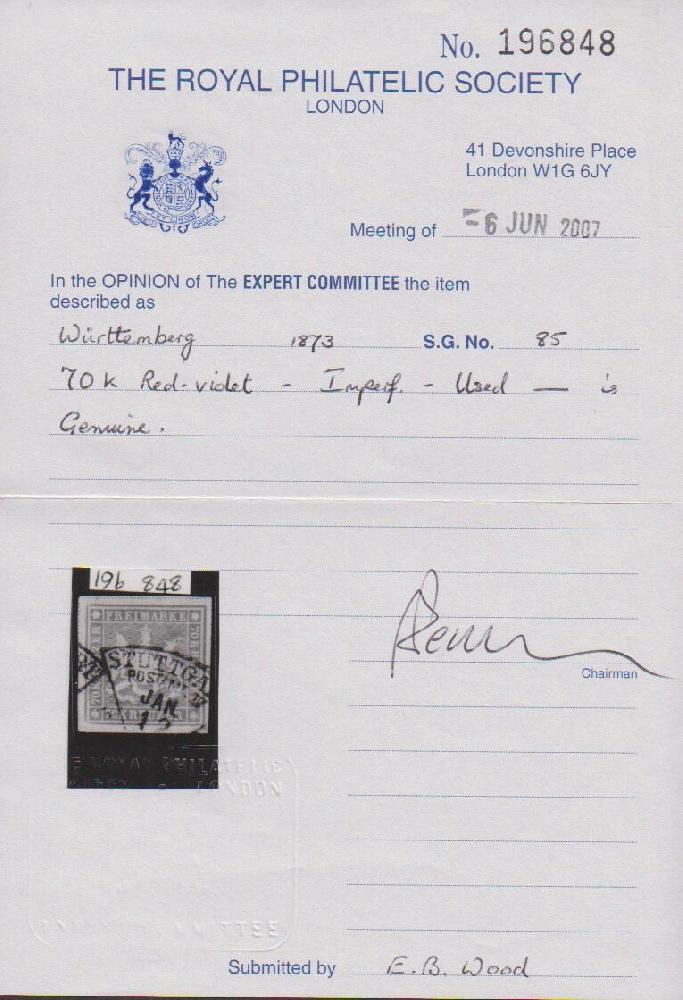 No. 196848
THE ROYAL PHILATELIC SOCIETY
LONDON
41 Devonshire Place
London W1G 6JY
Meeting of -6 JUN 2007
In the OPINION of The EXPERT COMMITTEE the item
described as
Württemberg 1873 S.G. No. 85
70k Red-violet - Imperf. - Used — is
Genuine.
196 848
FREIMARKE
STUTTGA
POST
JAN
Chairman
ROYAL PHILATELIC
LONDON
Submitted by E.B. Wood